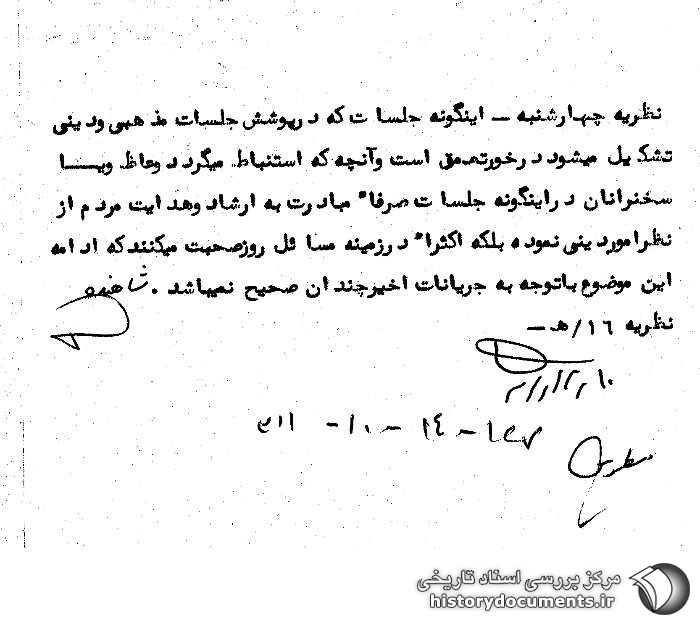 نظریه چهارشنبه – اینگونه جلسات که در پوشش جلسات مذهبی و دینی
تشکیل میشود در خور تعمق است و آنچه که استنباط میگردد وعاظ و یا
سخنرانان در اینگونه جلسات صرفاً مبادرت به ارشاد و هدایت مردم از
نظر امور دینی نموده بلکه اکثراً در زمینه مسائل روز صحبت میکنند که ادامه
این موضوع با توجه به جریانات اخیر چندان صحیح نمیباشد .
نظریه ۱۶/ هـ –
مرکز بررسی اسناد تاریخی
historydocuments.ir